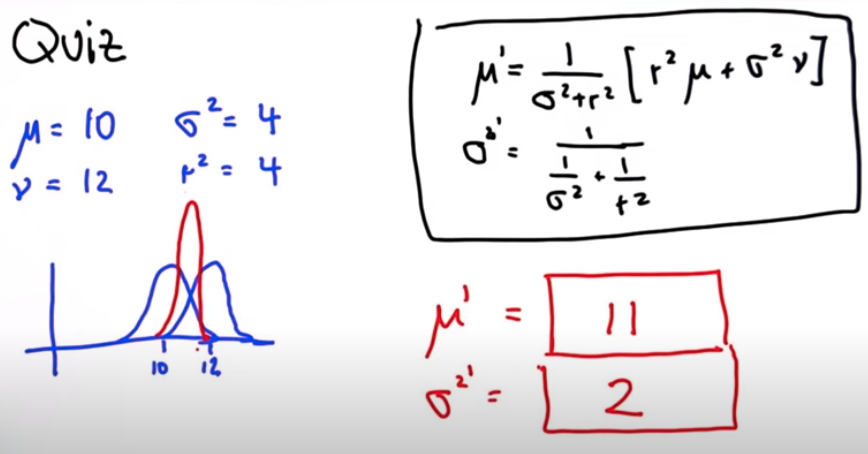 Quiz
μ = 10 σ² = 4
ν = 12 r² = 4
μ' = 1/(σ²+r²) [r² μ + σ² ν]
σ²' = 1/(1/σ² + 1/r²)
10 12
μ' = 11
σ²' = 2